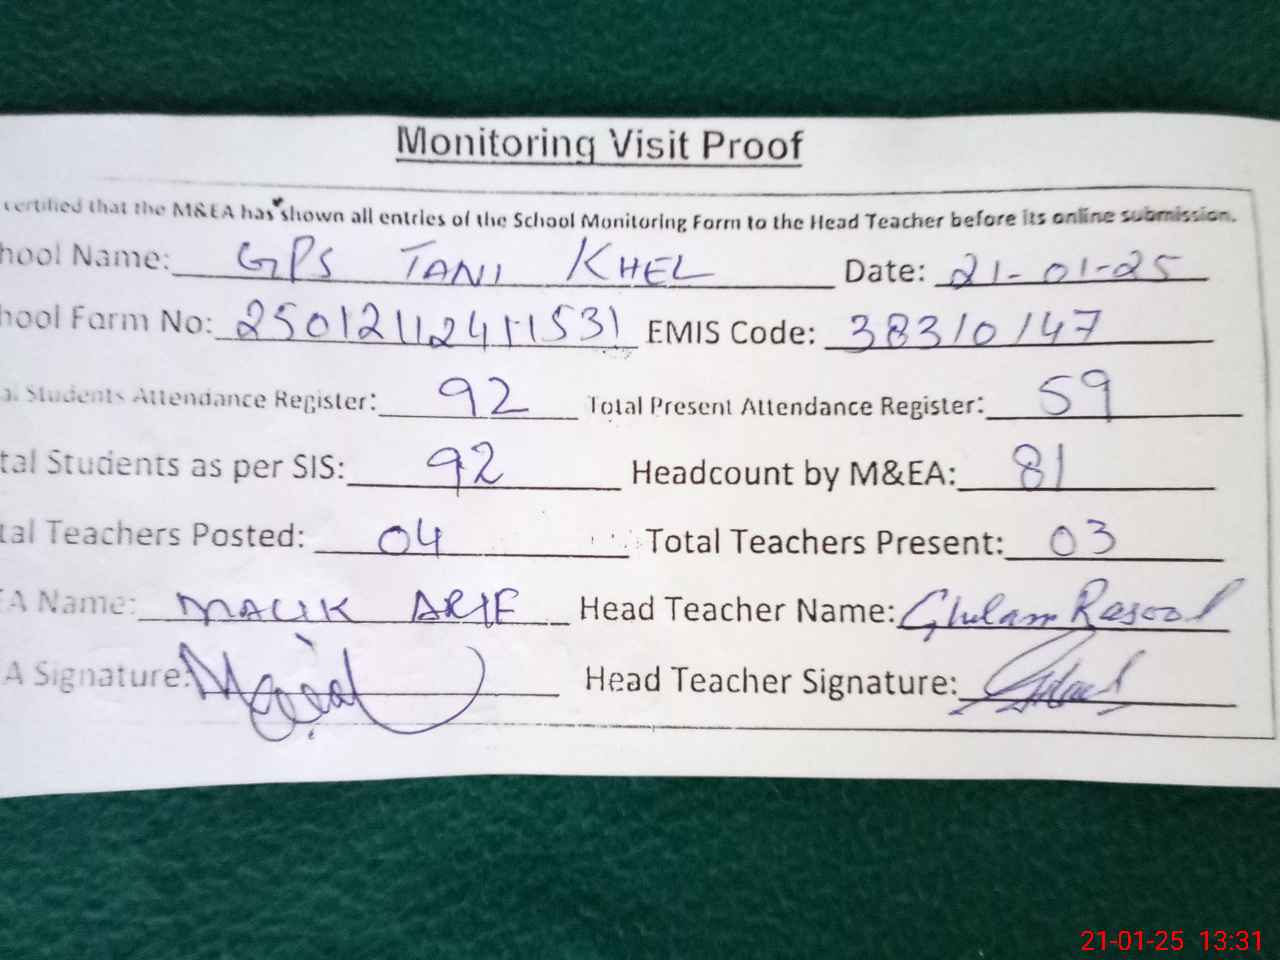 Monitoring Visit Proof
certified that the M&EA has shown all entries of the School Monitoring Form to the Head Teacher before its online submission.
hool Name: GPS TANI KHEL Date: 21-01-25
hool Form No: EMIS Code: 38310147
al Students Attendance Register: 92 Total Present Attendance Register: 59
tal Students as per SIS: 92 Headcount by M&EA: 81
tal Teachers Posted: 04 Total Teachers Present: 03
EA Name: MALIK ARIF Head Teacher Name: Ghulam Rasool
A Signature: Head Teacher Signature:
21-01-25 13:31